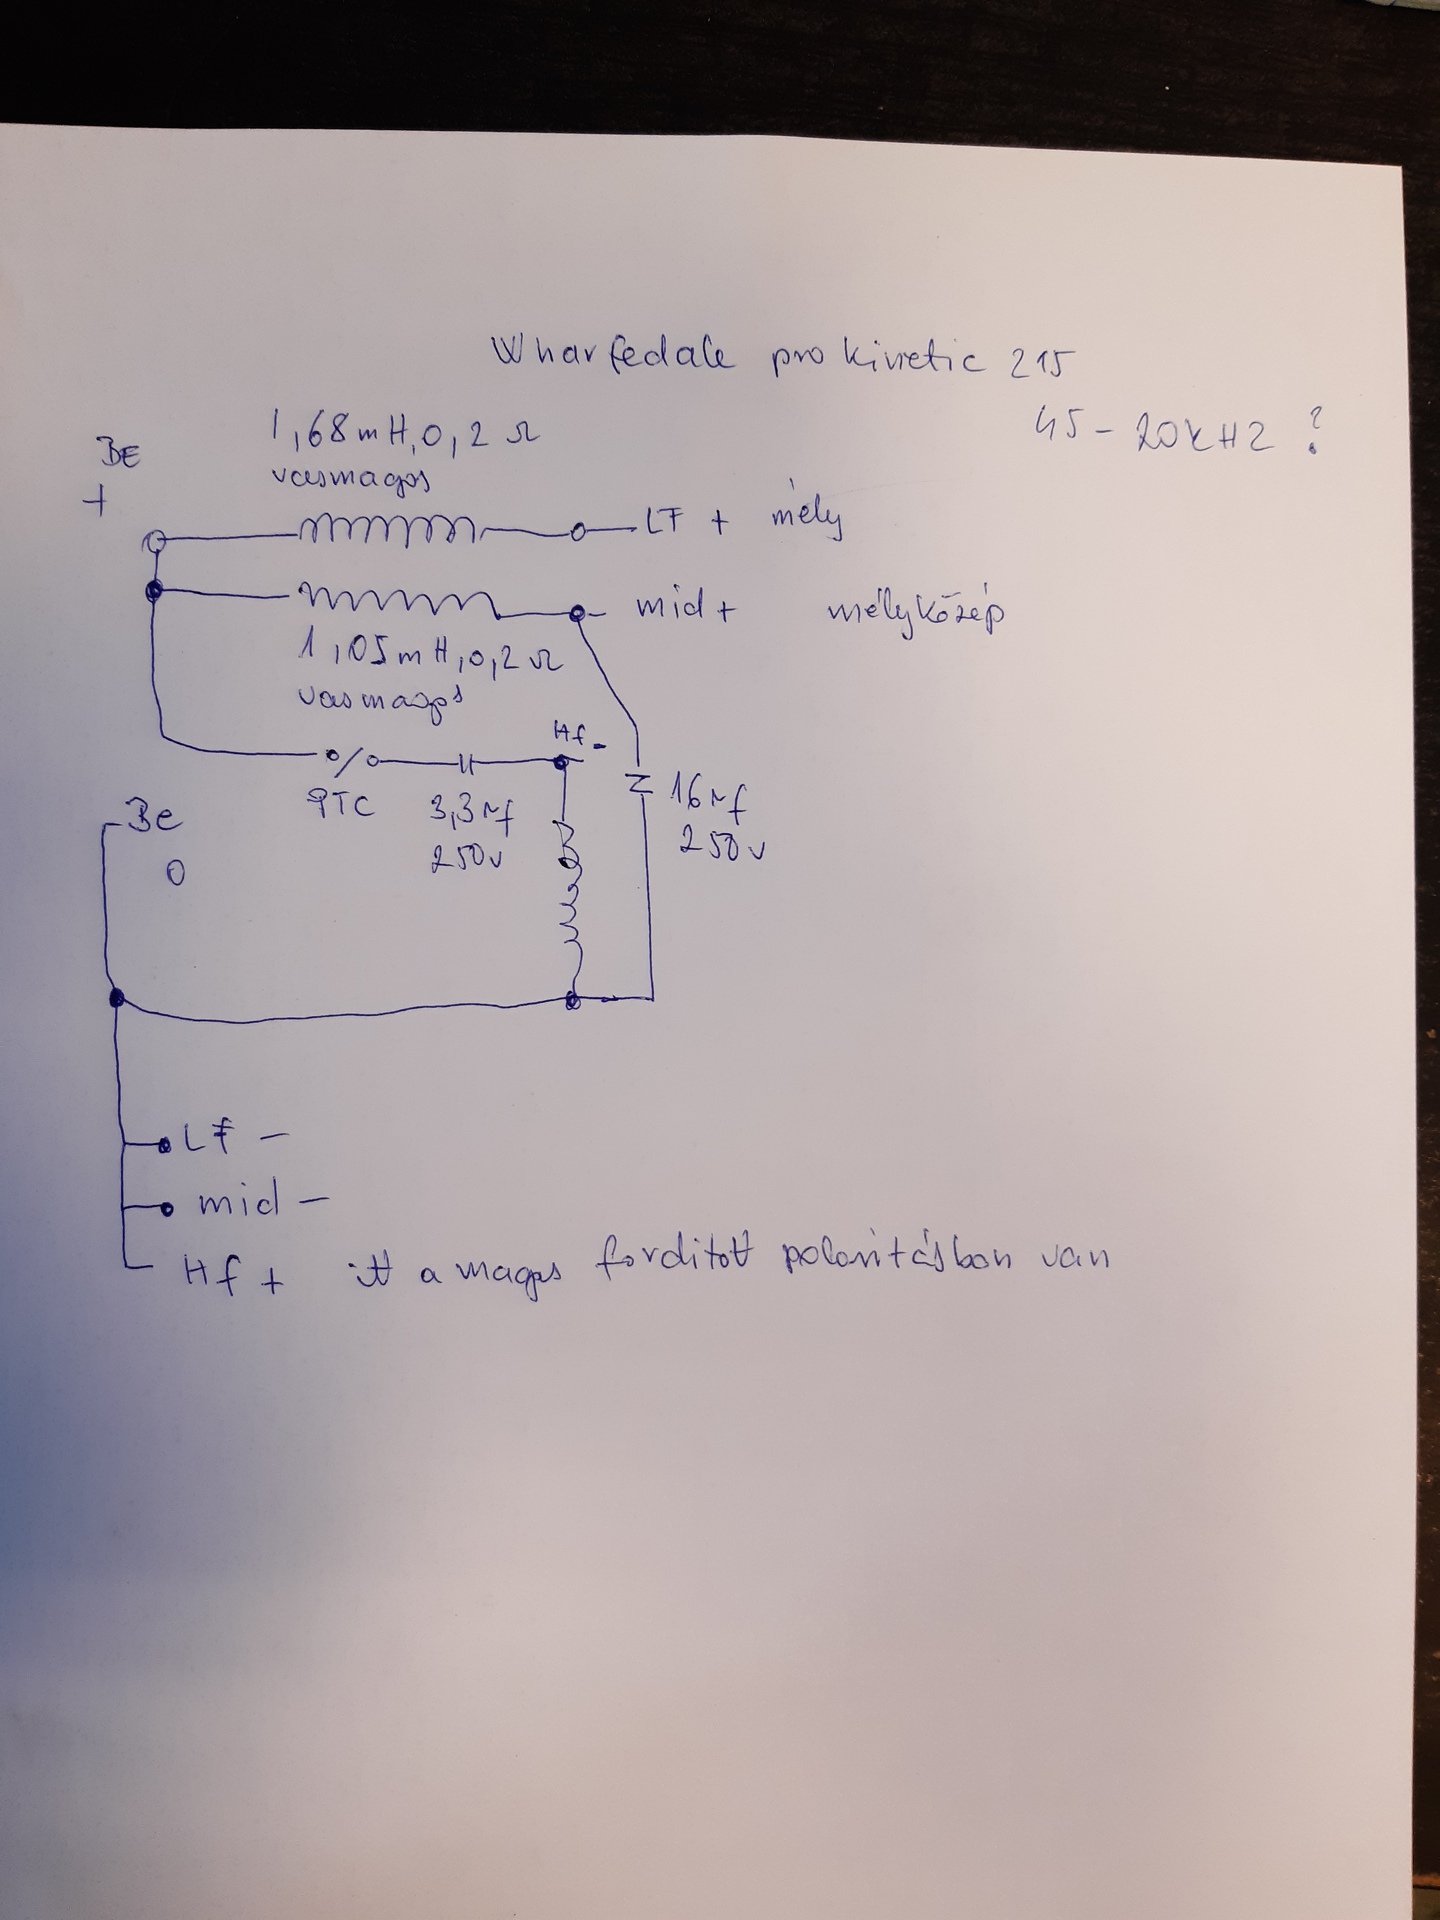 Wharfedale pro kinetic 215
45 - 20kHz ?
BE
+
1,68mH,0,2 Ω
vasmagos
LF + mély
mid + mélyközép
1,05mH,0,2Ω
vasmagos
Hf -
PTC
3,3 µf
250v
16 µf
250v
Be
0
LF -
mid -
Hf + itt a magas forditott polaritásban van